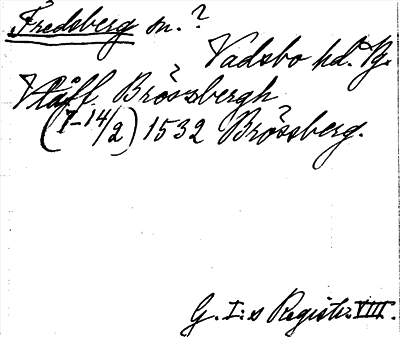 Fredsberg sn.?
Vadsbo hd. Vg.
Håff. Brössbergh
(7-14/2) 1532 Brössberg.
G. I:s Registr. VIII.